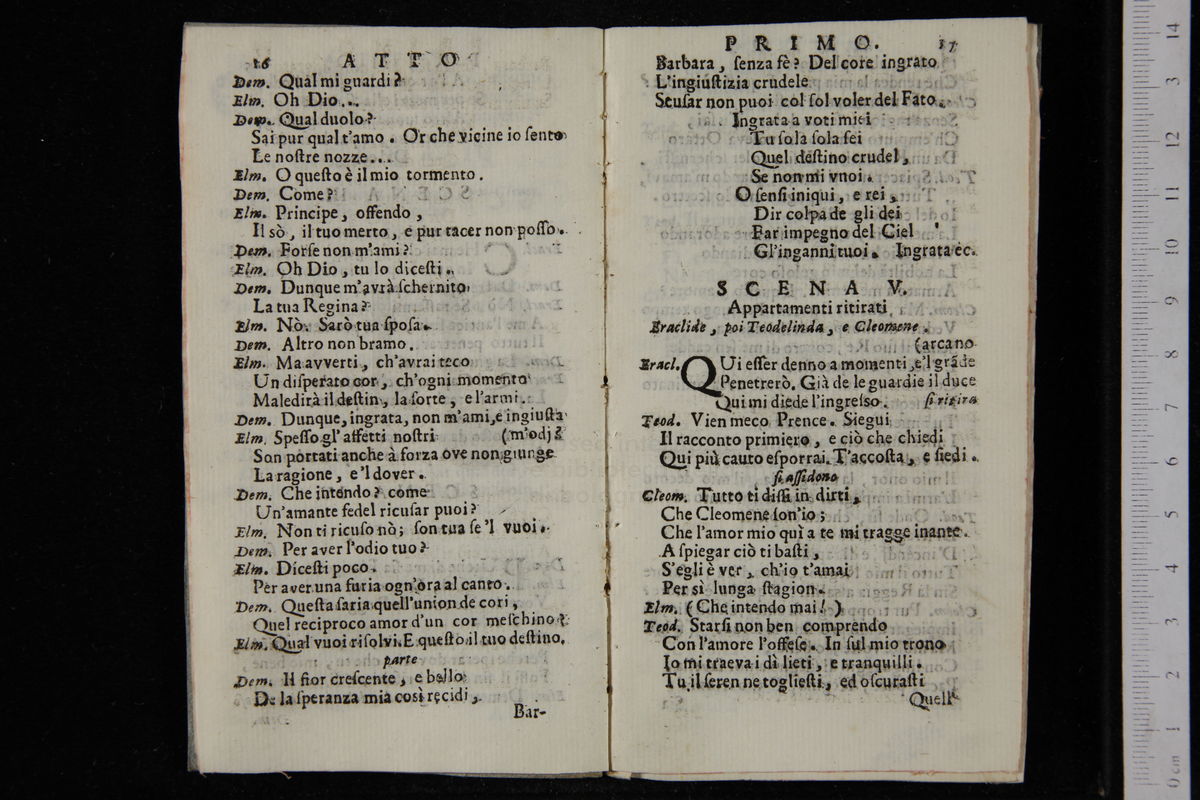 16 ATTO
Dem. Qual mi guardi?
Elm. Oh Dio...
Dem. Qual duolo?
Sai pur qual t'amo. Or che vicine io sento
Le nostre nozze...
Elm. O questo è il mio tormento.
Dem. Come?
Elm. Principe, offendo,
Il sò, il tuo merto, e pur tacer non posso.
Dem. Forse non m'ami?
Elm. Oh Dio, tu lo dicesti.
Dem. Dunque m'avrà schernito
La tua Regina?
Elm. Nò. Sarò tua sposa.
Dem. Altro non bramo.
Elm. Ma avverti, ch'avrai teco
Un disperato cor, ch'ogni momento
Maledirà il destin, la sorte, e l'armi.
Dem. Dunque, ingrata, non m'ami, e ingiusta
Elm. Spesso gl'affetti nostri (m'odj?
Son portati anche à forza ove non giunge
La ragione, e 'l dover.
Dem. Che intendo? come
Un'amante fedel ricusar puoi?
Elm. Non ti ricuso nò; son tua se 'l vuoi.
Dem. Per aver l'odio tuo?
Elm. Dicesti poco.
Per aver una furia ogn'ora al canto.
Dem. Questa saria quell'union de cori,
Quel reciproco amor d'un cor meschino?
Elm. Qual vuoi risolvi. E questo il tuo destino.
parte
Dem. Il fior crescente, e bello
De la speranza mia così recidi,
Bar-
PRIMO. 17
Barbara, senza fè? Del core ingrato
L'ingiustizia crudele
Scusar non puoi col sol voler del Fato.
Ingrata a voti miei
Tu sola sola sei
Quel destino crudel,
Se non mi vuoi.
O sensi iniqui, e rei,
Dir colpa de gli dei
Far impegno del Ciel
Gl'inganni tuoi. Ingrata ec.
SCENA V.
Appartamenti ritirati
Eraclide, poi Teodelinda, e Cleomene.
(arcano
Eracl. QUi esser denno a momenti, e'l grãde
Penetrerò. Già de le guardie il duce
Qui mi diede l'ingresso. si ritira
Teod. Vien meco Prence. Siegui
Il racconto primiero, e ciò che chiedi
Qui più cauto esporrai. T'accosta, e siedi.
si assidono
Cleom. Tutto ti dissi in dirti,
Che Cleomene son'io;
Che l'amor mio quì a te mi tragge inante.
A spiegar ciò ti basti,
S'egli è ver, ch'io t'amai
Per sì lunga stagion.
Elm. (Che intendo mai!)
Teod. Starsi non ben comprendo
Con l'amore l'offese. In sul mio trono
Io mi traeva i dì lieti, e tranquilli.
Tu il seren ne togliesti, ed oscurasti
Quell'